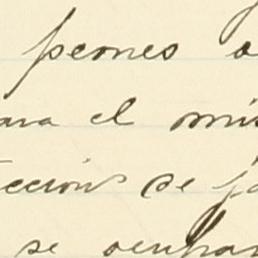 peones a
ara el mis
ección de fa
se ocupan